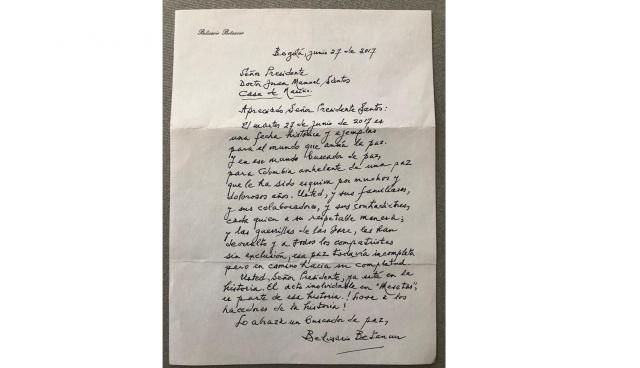 Belisario Betancur
Bogotá, junio 27 de 2017
Señor Presidente
Doctor Juan Manuel Santos
Casa de Nariño.
Apreciado Señor Presidente Santos:
El martes 27 de junio de 2017 es
una fecha histórica y ejemplar
para el mundo que ansía la paz.
Y en ese mundo buscador de paz,
para Colombia anhelante de una paz
que le ha sido esquiva por muchos y
dolorosos años. Usted, y sus familiares,
y sus colaboradores, y sus contradictores,
cada quien a su respetable manera;
y las guerrillas de las Farc, les han
devuelto y a todos los compatriotas
sin exclusión, esa paz todavía incompleta
pero en camino hacia su completud.
Usted, Señor Presidente, ya está en la
historia. El acto inolvidable en "Mesetas",
es parte de esa historia. ! a los
hacedores de la historia!
Lo abraza un buscador de paz,
Belisario Betancur